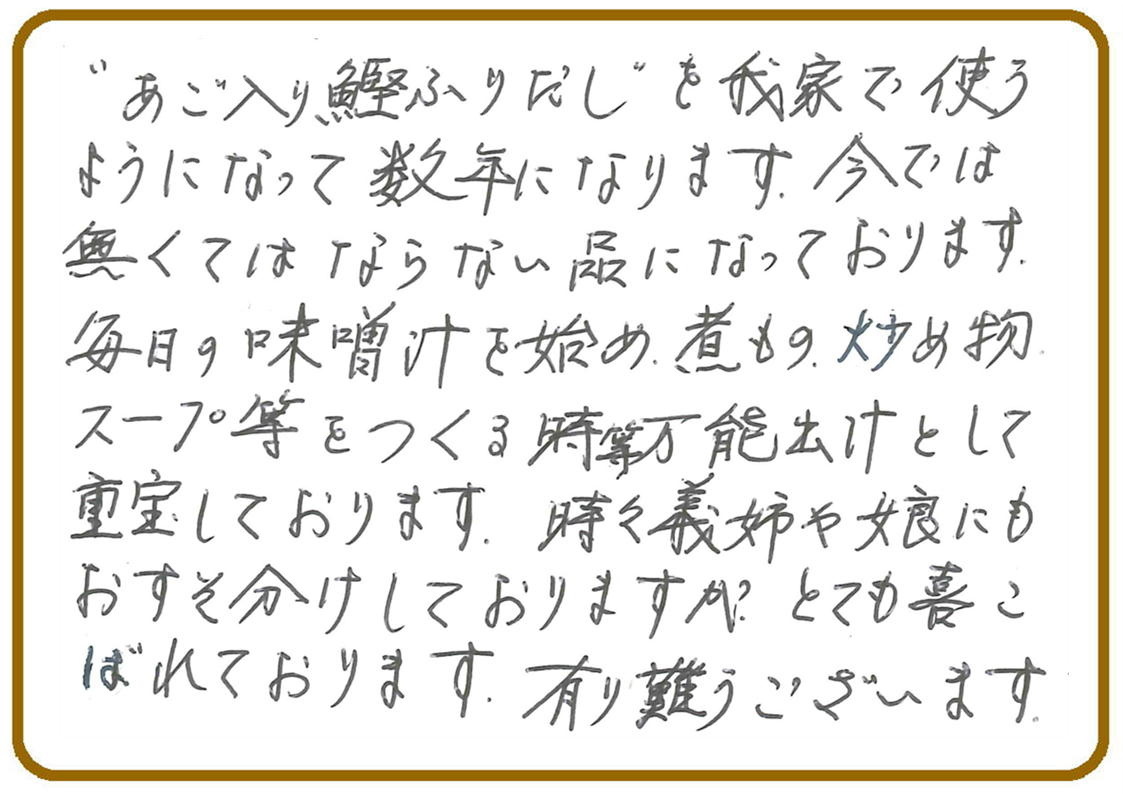 "あご入り鰹ふりだし"を我家で使う
ようになって数年になります.今では
無くてはならない品になっております.
毎日の味噌汁を始め.煮もの.炒め物.
スープ等をつくる時等万能出汁として
重宝しております.時々義姉や娘にも
おすそ分けしておりますが?とても喜こ
ばれております.有り難うございます.